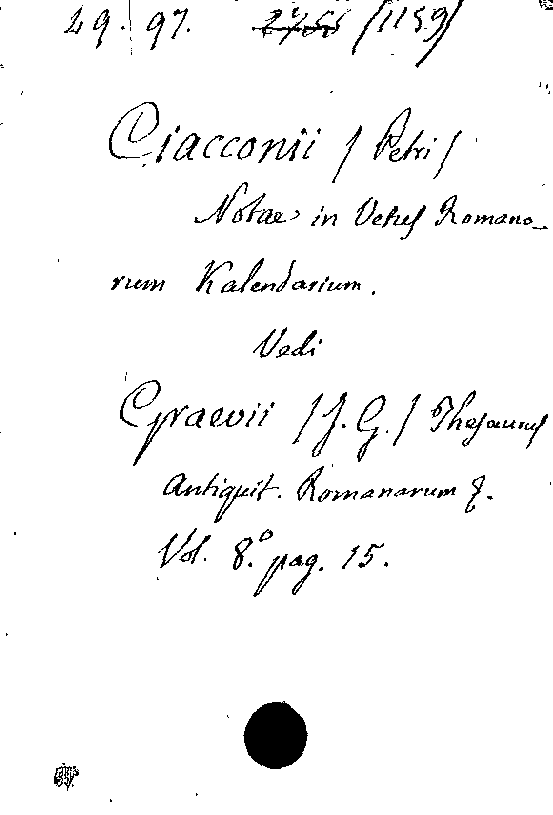 29. 97. 2755 /1159/
Ciacconii / Petri /
Notae in Vetus Romano-
rum Kalendarium.
Vedi
Graevii / J. G. / Thesaurus
Antiquit. Romanarum &.
Vol. 8.° pag. 15.